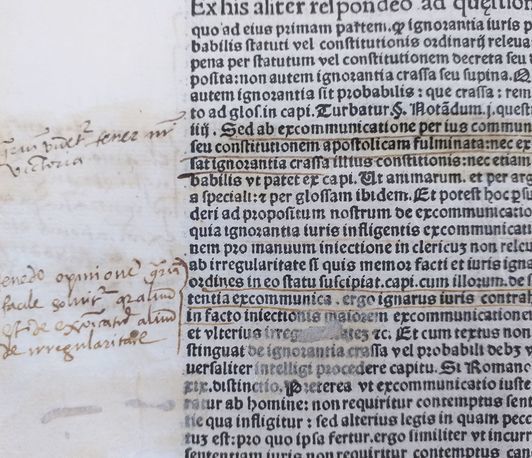 Ex his aliter respondeo ad
quo ad eius primam partem. ꝙ ignorantia iuris p
babilis statuti vel constitutionis ordinarij releua
pena per statutum vel constitutionem decreta seu
posita: non autem ignorantia crassa seu supina.
autem ignorantia sit probabilis: que crassa: rem
to ad glos. in capi. Turbatur. §. Notādum. j. quest
iiij. Sed ab excommunicatione per ius commun
seu constitutionem apostolicam fulminata: nec ex
sat ignorantia crassa illius constitutionis: nec etiam
babilis vt patet ex capi. Ut animarum. et per arg
a speciali: et per glossam ibidem. Et potest hoc
deri ad propositum nostrum de excommunicatio
quia ignorantia iuris infligentis excommunicat
nem pro manuum iniectione in clericuz non releu
ab irregularitate si quis memor facti et iuris igna
ordines in eo statu suscipiat. capi. cum illorum. de
tentia excommunica. ergo ignarus iuris contra
in facto iniectionis maiorem excommunicatione
et vlterius ⁊c. Et cum textus non
stinguat de ignorantia crassa vel probabili debz
uersaliter intelligi procedere capitu. Si Romano
xix. distinctio. Preterea vt excommunicatio iuste
ratur ab homine: non requiritur contemptus sent
tie qua infligitur: sed alterius legis in quam pecc
tuz est: pro quo ipsa fertur. ergo similiter vt incurr
sententiam iuris non requiritur contemptus
tenere
victoria
opinione
facile aliud
est de aliud
de irregularitate